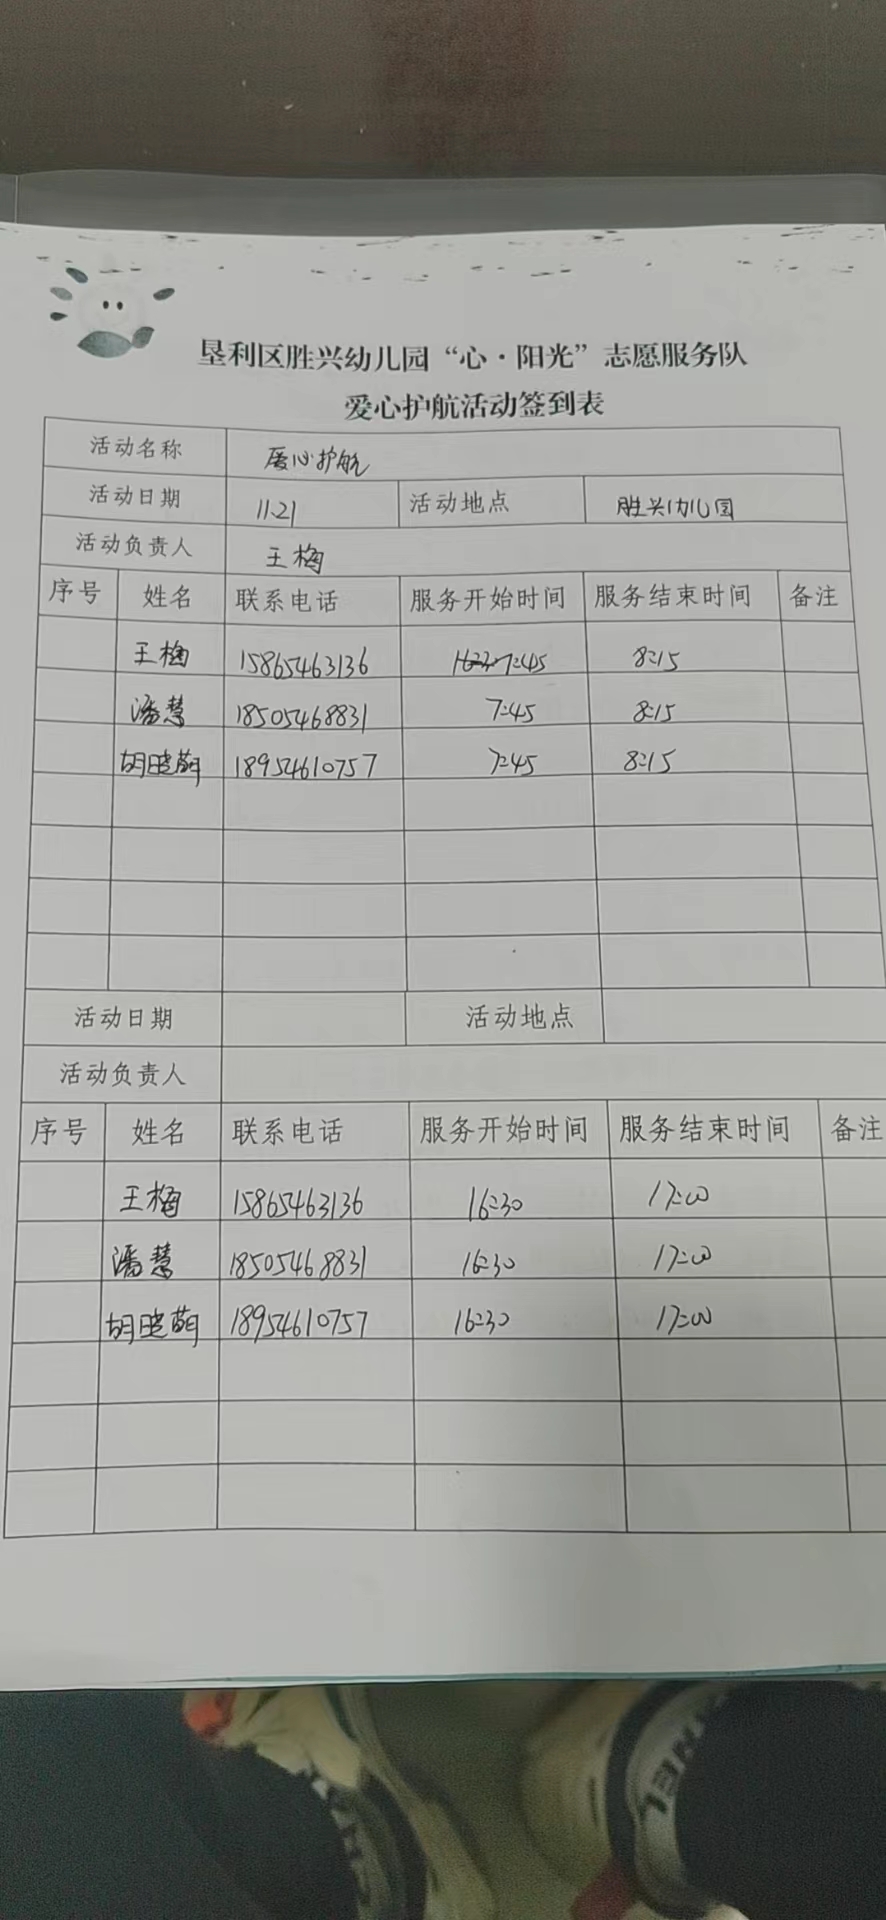 垦利区胜兴幼儿园“心·阳光”志愿服务队
爱心护航活动签到表
活动名称 爱心护航
活动日期 11.21 活动地点 胜兴幼儿园
活动负责人 王梅
序号 姓名 联系电话 服务开始时间 服务结束时间 备注
王梅 15865463136 7:45 8:15
潘慧 18505468831 7:45 8:15
胡晓萌 18954610757 7:45 8:15
活动日期 活动地点
活动负责人
序号 姓名 联系电话 服务开始时间 服务结束时间 备注
王梅 15865463136 16:30 17:00
潘慧 18505468831 16:30 17:00
胡晓萌 18954610757 16:30 17:00